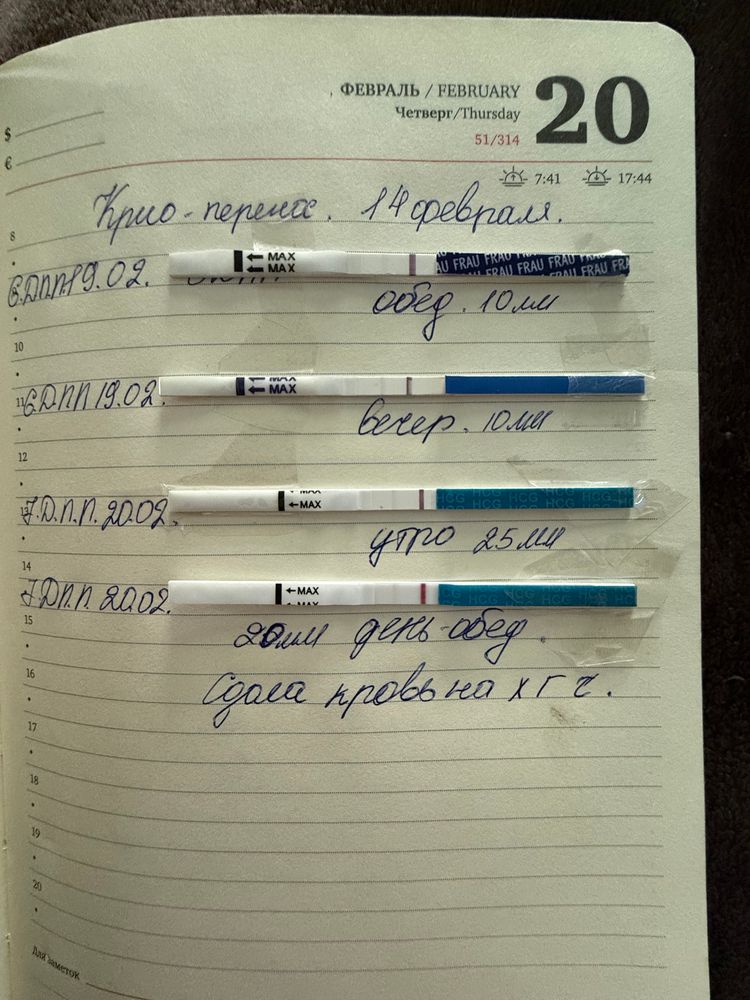 ФЕВРАЛЬ / FEBRUARY 20
Четверг/Thursday
51/314
$
€
7:41 17:44
Крио-перенос. 14 февраля.
8
MAX
MAX
FRAU FRAU FRAU FRAU FRAU
6.Д.П.П.19.02.
9
обед. 10мм
10
MAX
MAX
11
6.Д.П.П 19.02.
вечер. 10мм
12
MAX
MAX
HCG HCG HCG HCG
13
7.Д.П.П. 20.02.
утро 25мм
14
MAX
MAX
7 Д.П.П. 20.02.
15
20мм день-обед.
16
Сдала кровь на хгч.
17
18
19
20
Для заметок